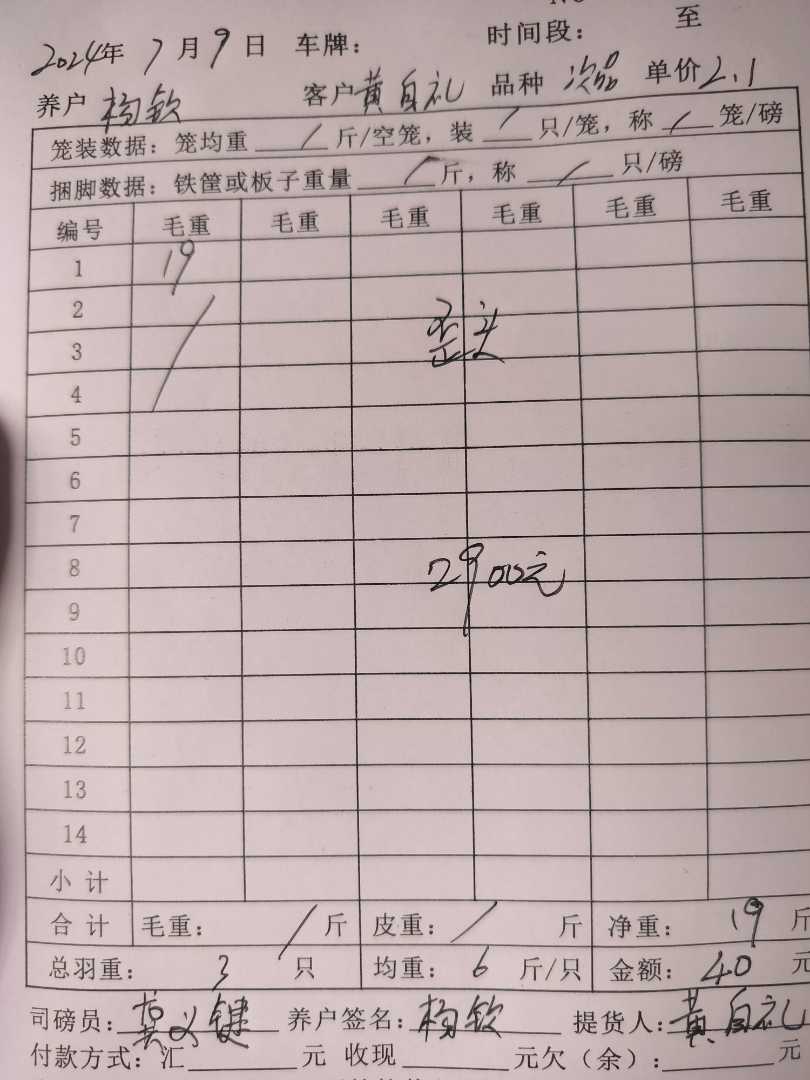 时间段： 至
2024年 7 月 9 日 车牌：
养户 杨钦 客户 黄自礼 品种 次品 单价 2.1
笼装数据：笼均重 / 斤/空笼，装 / 只/笼，称 / 笼/磅
捆脚数据：铁筐或板子重量 / 斤，称 / 只/磅
编号 毛重 毛重 毛重 毛重 毛重 毛重
1 19
2
3 歪头
4
5
6
7
8 2900元
9
10
11
12
13
14
小 计
合 计 毛重： / 斤 皮重： / 斤 净重： 19 斤
总羽重： 3 只 均重： 6 斤/只 金额： 40 元
司磅员： 龚义键 养户签名： 杨钦 提货人： 黄自礼
付款方式：汇 元 收现 元欠（余）： 元